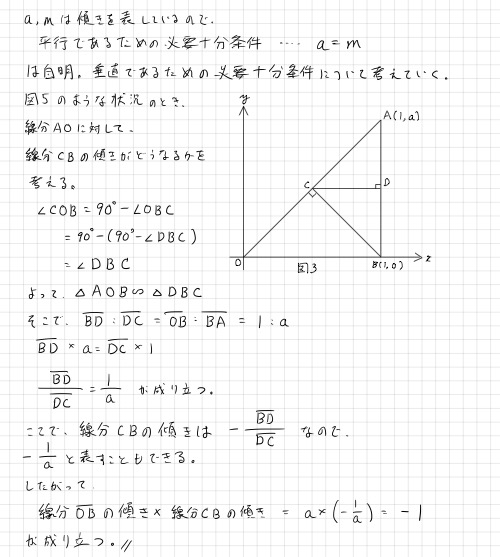 a, m は傾きを表しているので、
平行であるための必要十分条件 ‥‥ a = m
は自明。垂直であるための必要十分条件について考えていく。
図5のような状況のとき、
線分AOに対して、
線分CBの傾きがどうなるかを
考える。
∠COB = 90° - ∠OBC
= 90° - (90° - ∠DBC)
= ∠DBC
y
A(1,a)
C
D
O
図3
B(1,0)
x
よって、△AOB ∽ △DBC
そこで、BD : DC = OB : BA = 1 : a
BD × a = DC × 1
BD/DC = 1/a が成り立つ。
ここで、線分CBの傾きは -BD/DC なので、
-1/a と表すこともできる。
したがって、
線分OBの傾き × 線分CBの傾き = a × (-1/a) = -1
が成り立つ。//